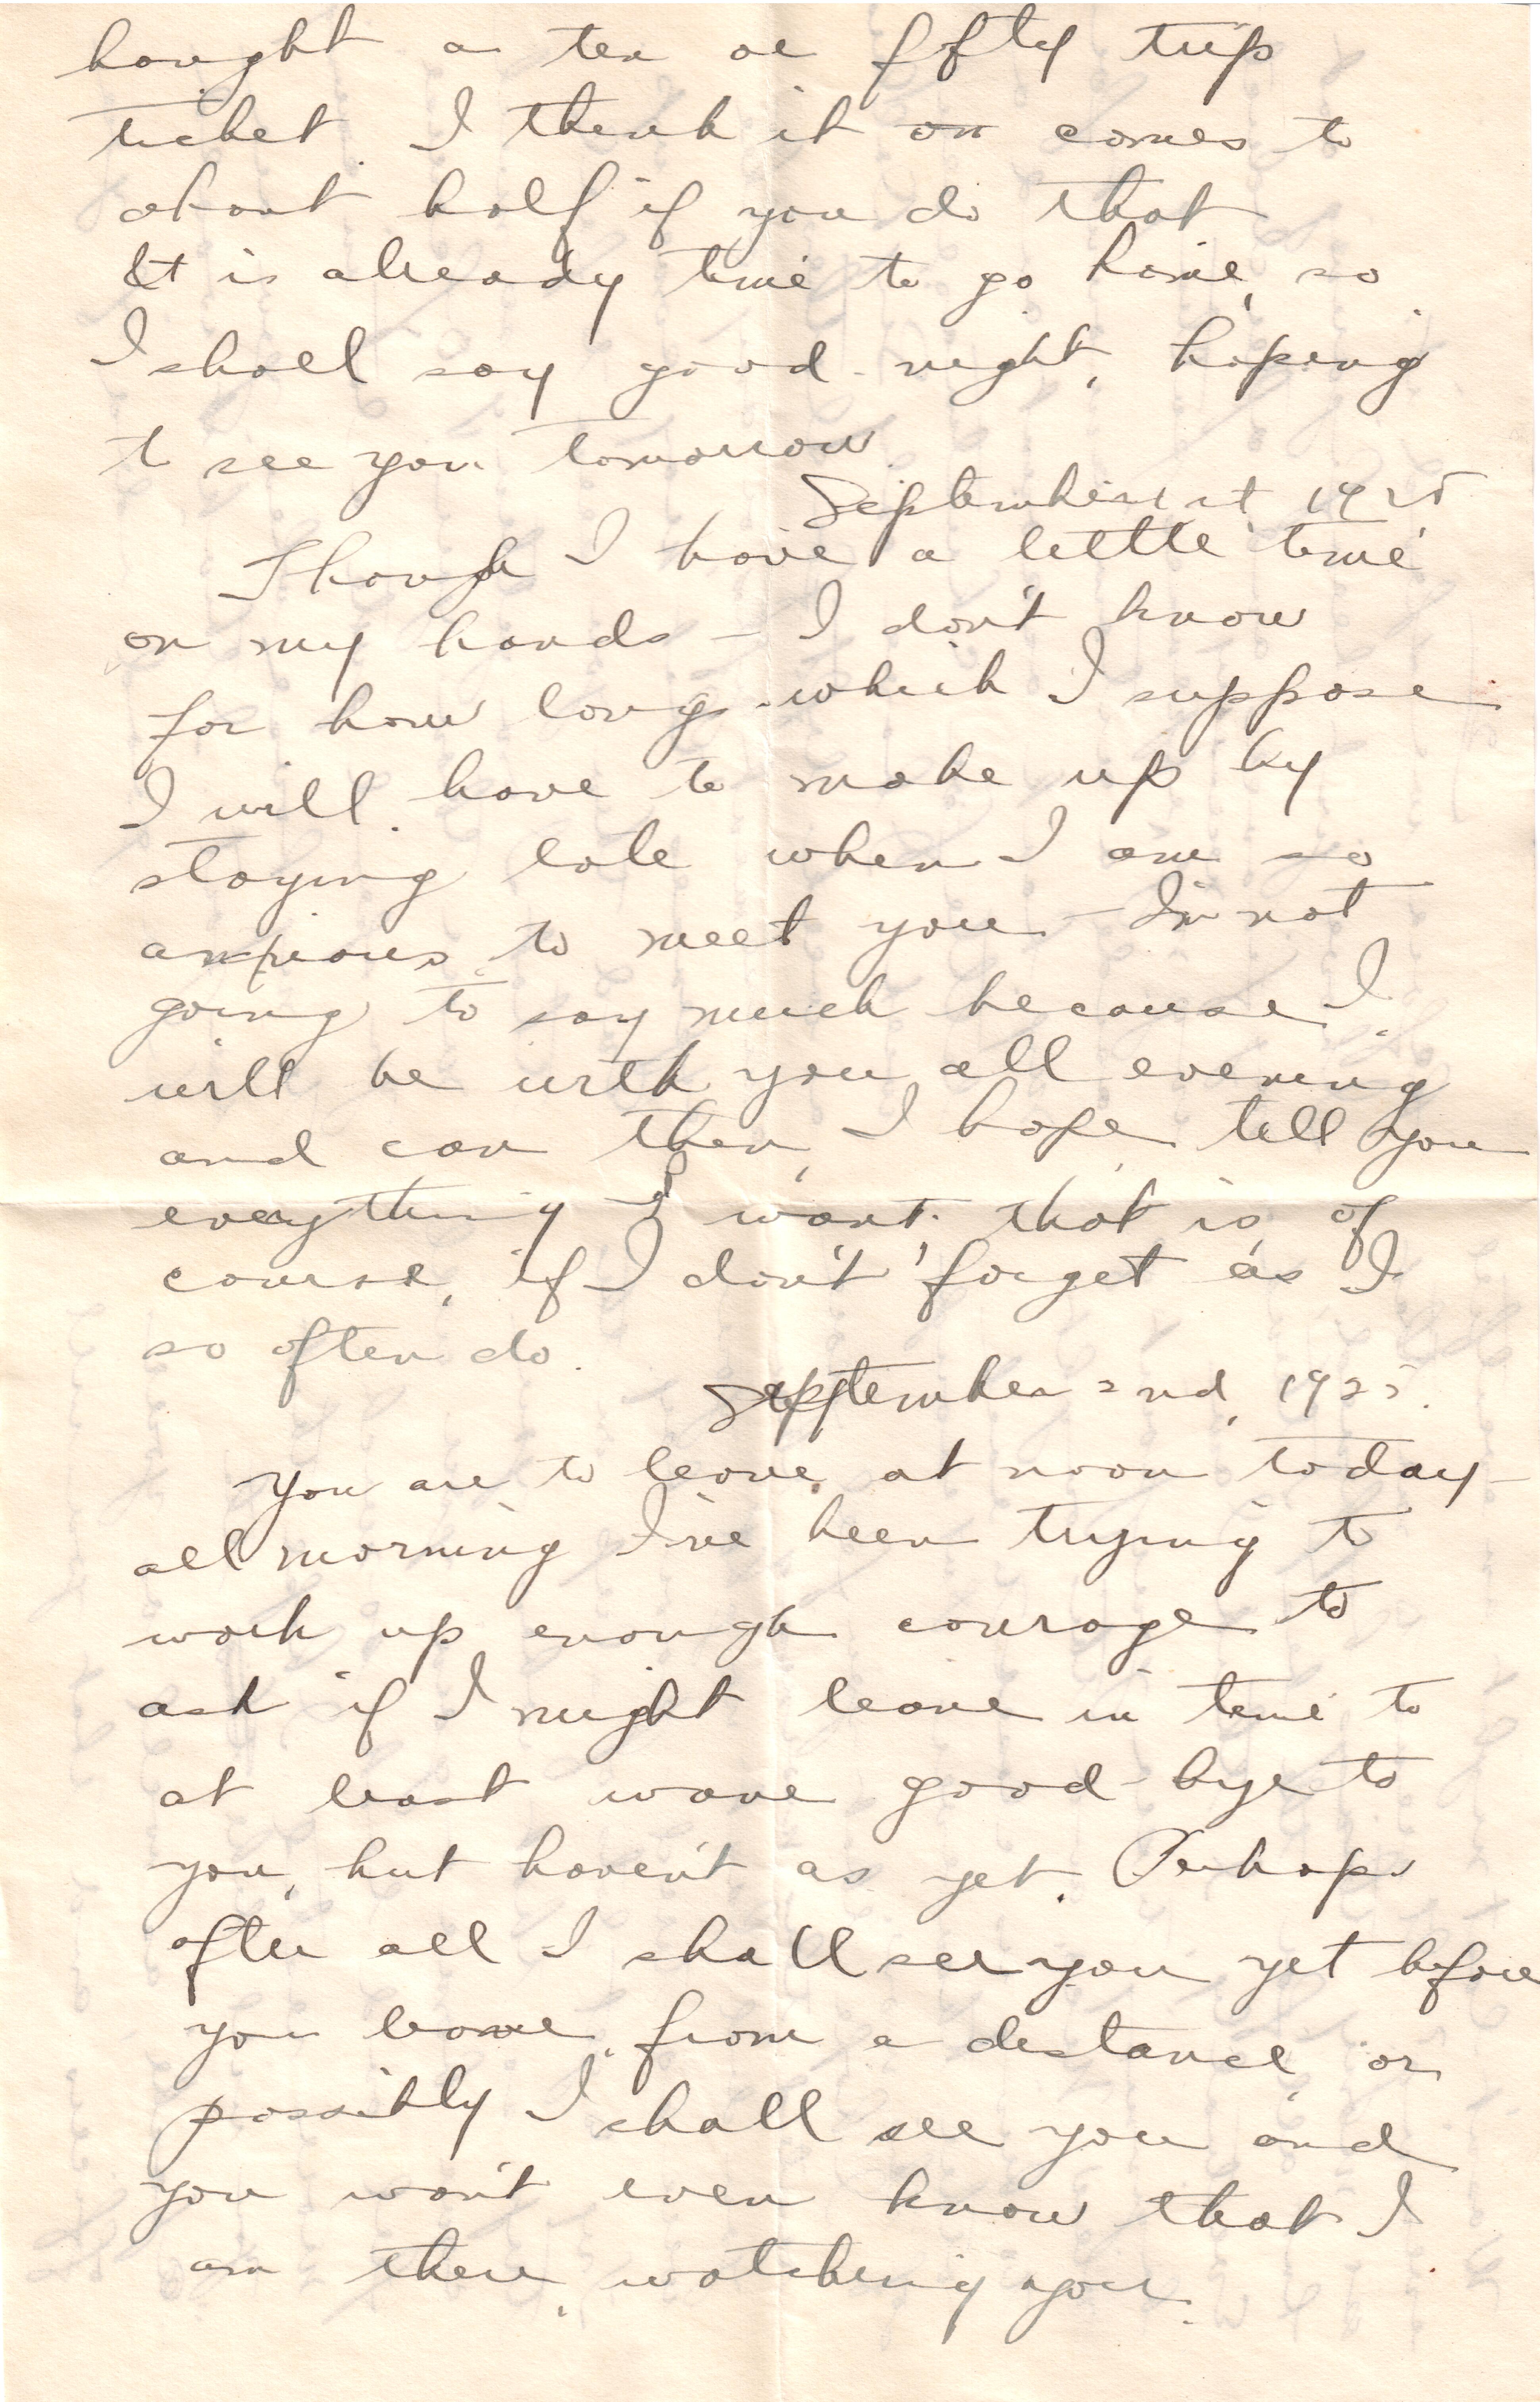 bought a ten or fifty trip
ticket. I think it on comes to
about half if you do that
It is already time to go home, so
I shall say good-night, hoping
to see you tomorrow.
September 1st 1925
Though I have a little time
on my hands - I don't know
for how long - which I suppose
I will have to make up by
staying late when I am so
anxious to meet you - I'm not
going to say much because I
will be with you all evening
and can then, I hope, tell you
everything I want, that is, of
course, if I don't forget as I
so often do.
September 2nd, 1925.
You are to leave at noon today -
all morning I've been trying to
work up enough courage to
ask if I might leave in time to
at least wave good-bye to
you, but haven't as yet. Perhaps
after all I shall see you yet before
you leave, from a distance, or
possibly I shall see you and
you won't even know that I
am there, watching you.